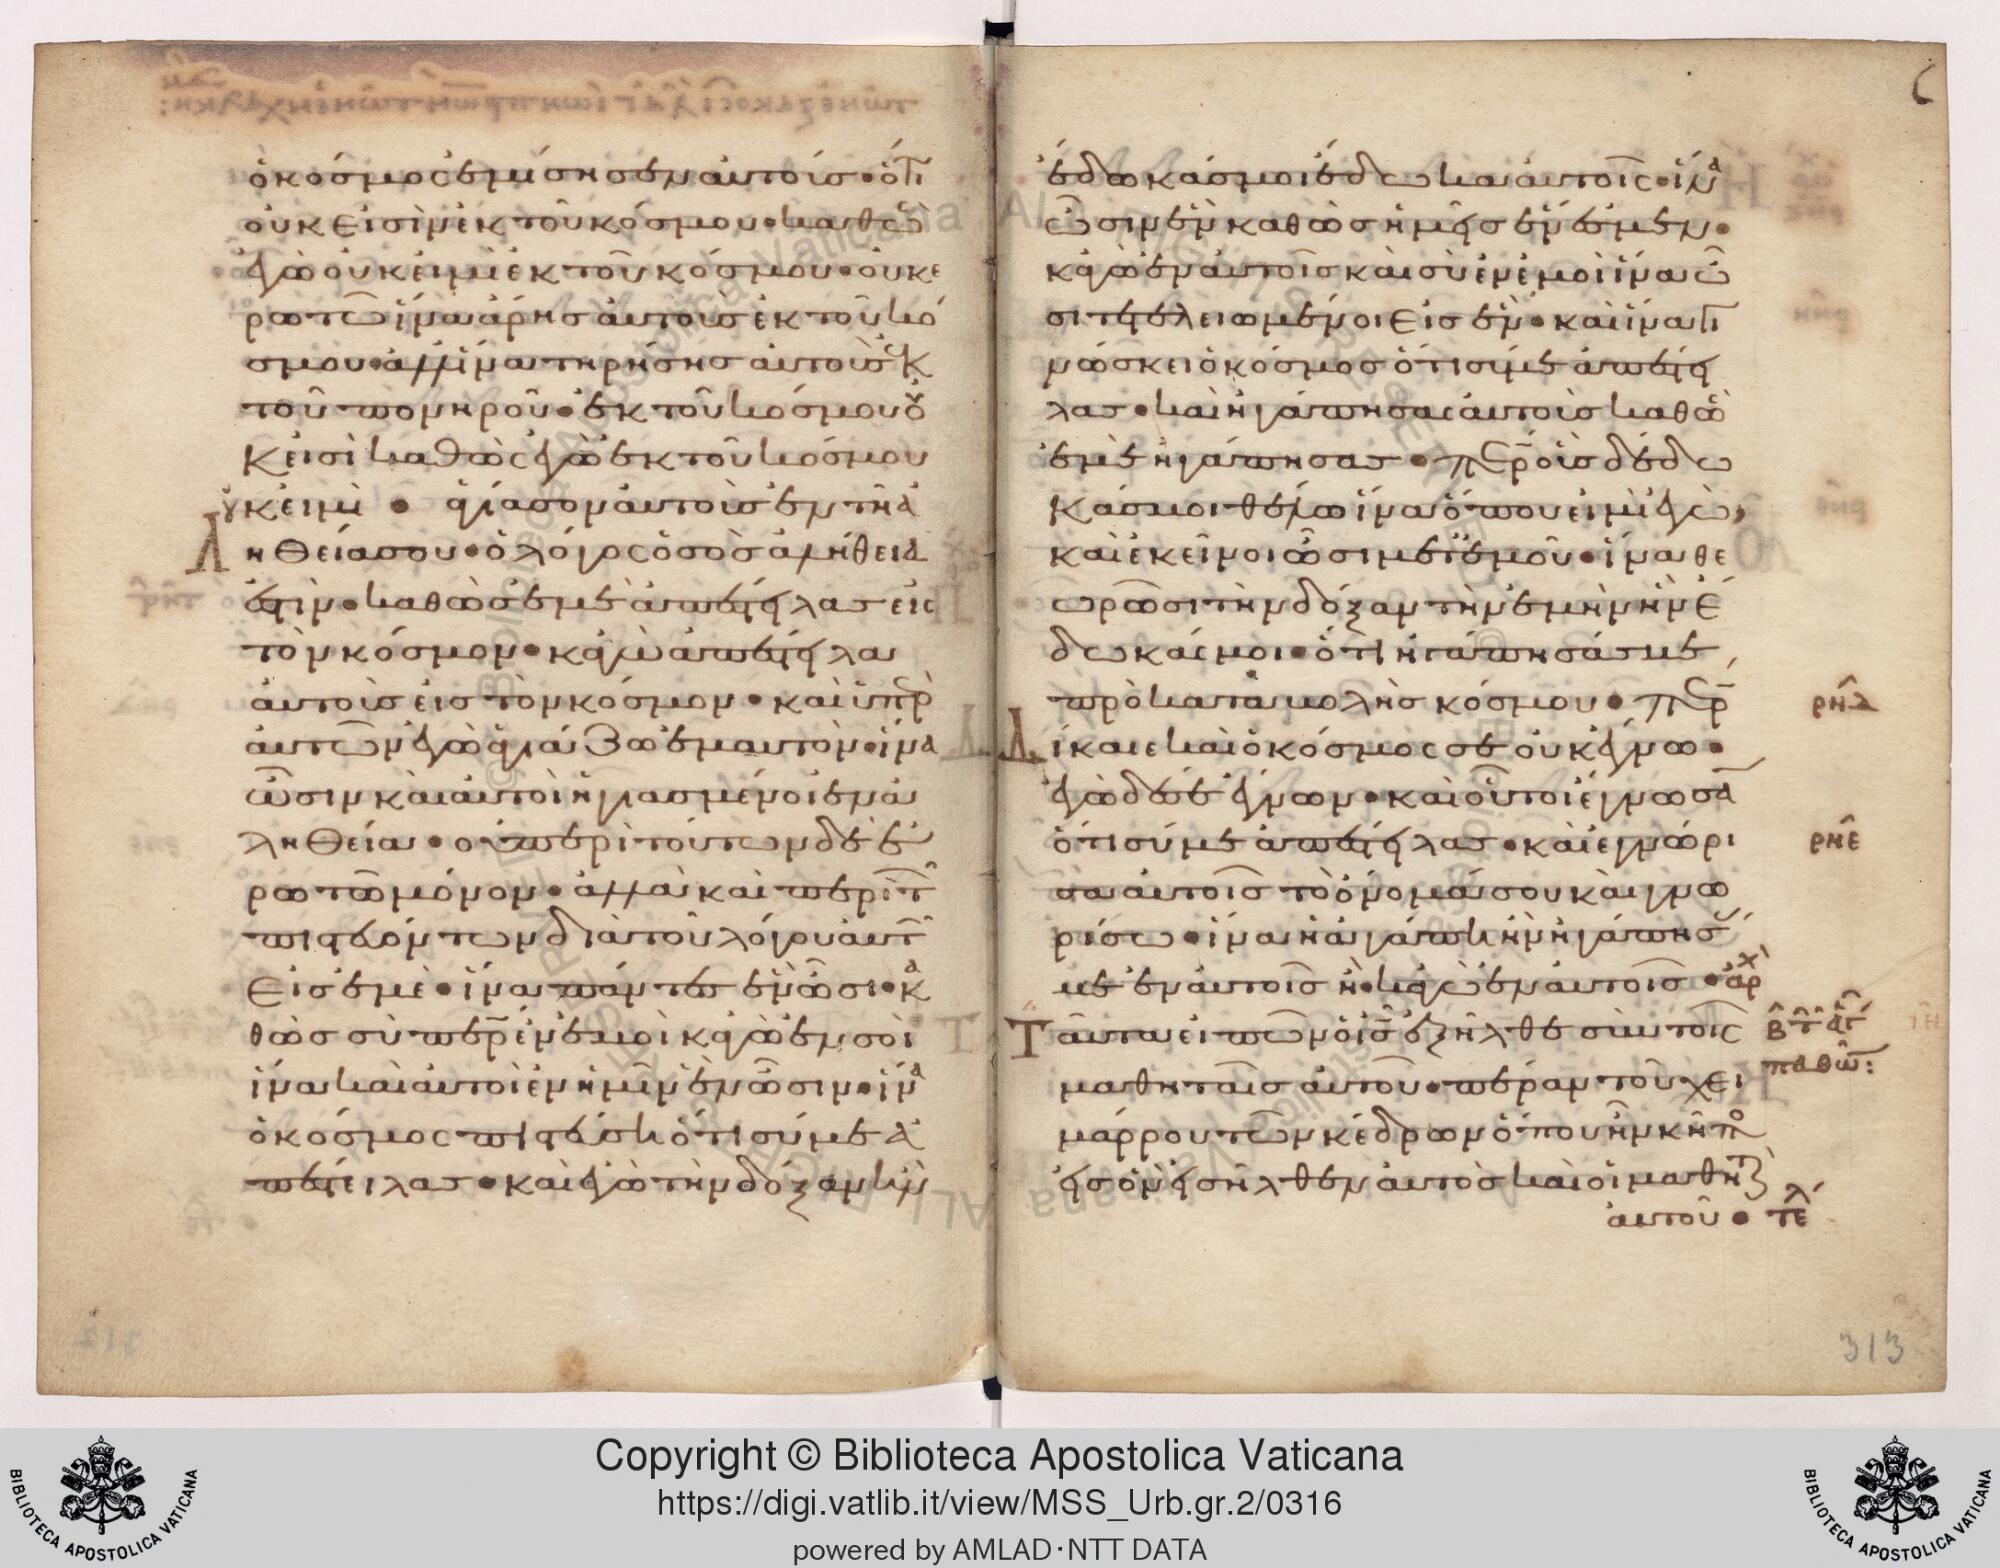 ὁ κόσμος ἐμίσησεν αὐτούσ· ὅτι
οὐκ εἰσὶν ἐκ τοῦ κόσμου· καθὼ
ἐγὼ οὐκ εἰμὶ ἐκ τοῦ κόσμου· οὐκ ἐ
ρωτῶ ἵνα ἄρησ αὐτοὺσ ἐκ τοῦ κό
σμου· ἀλλ' ἵνα τηρήσησ αὐτοὺσ ἐκ
τοῦ πονηροῦ· ἐκ τοῦ κόσμου οὐ
κ εἰσὶ καθὼς ἐγὼ ἐκ τοῦ κόσμου
οὐκ εἰμὶ· ἁγίασον αὐτοὺσ ἐν τῆ ἀ
ληθεία σου· ὁ λόγος ὁ σὸσ ἀλήθειά
ἐστιν· καθὼσ ἐμὲ ἀπέστειλασ εἰς
τὸν κόσμον· κἀγὼ ἀπέστειλα
αὐτοὺσ εἰσ τὸν κόσμον· καὶ ὑπὲρ
αὐτῶν ἐγὼ ἁγιάζω ἐμαυτὸν· ἵνα
ὦσιν καὶ αὐτοὶ ἡγιασμένοι ἐν ἀ
ληθεία· οὐ περὶ τούτων δὲ ἐ
ρωτῶ μόνον· ἀλλὰ καὶ περὶ τ
πιστευόντων διὰ τοῦ λόγου αὐτ
εἰσ ἐμὲ· ἵνα πάντεσ ἓν ὦσι· κα
θὼσ σὺ περ ἐν ἐμοὶ κἀγὼ ἐν σοὶ
ἵνα καὶ αὐτοὶ ἐν ἡμῖν ἓν ὦσιν· ἵνα
ὁ κόσμος πιστεύση ὅτι σύ με ἀ
πέστειλασ· καὶ ἐγὼ τὴν δόξαν ἣν
ἔδωκάσ μοι ἔδωκα αὐτοῖς· ἵνα
ὦσιν ἓν καθὼσ ἡμεῖσ ἕν ἐσμεν·
κἀγὼ ἐν αὐτοῖσ καὶ σὺ ἐν ἐμοὶ ἵνα ὦ
σι τετελειωμένοι εἰσ ἓν· καὶ ἵνα γι
νώσκει ὁ κόσμοσ ὅτι σύ με ἀπέστει
λασ· καὶ ἠγάπησασ αὐτοὺσ καθὼ
ἐμὲ ἠγάπησασ· περ οὓσ δέδω
κάσ μοι θέλω ἵνα ὅπου εἰμὶ ἐγὼ,
καὶ ἐκεῖνοι ὦσι μετ' ἐμοῦ· ἵνα θε
ωρῶσι τὴν δόξαν τὴν ἐμὴν ἣν ἔ
δωκάς μοι· ὅτι ἠγάπησάσ με
πρὸ καταβολῆσ κόσμου· περ
δίκαιε καὶ ὁ κόσμος σε οὐκ ἔγνω·
ἐγὼ δέ σε ἔγνων· καὶ οὗτοι ἔγνωσα
ὅτι σύ με ἀπέστειλασ· καὶ ἐγνώρι
σα αὐτοῖσ τὸ ὄνομά σου καὶ γνω
ρίσω· ἵνα ἡ ἀγάπη ἣν ἠγάπησ
με ἐν αὐτοῖσ ἦ· κἀγὼ ἐν αὐτοῖσ· ἀρχ
Ταῦτα εἰπὼν ὁ ισ ἐξῆλθε σὺν τοῖς
μαθηταῖσ αὐτοῦ· πέραν τοῦ χει
μάρρου τῶν κέδρων ὅπου ἦν κῆπο
εἰσ ὃν εἰσῆλθεν αὐτὸσ καὶ οἱ μαθητ
αὐτοῦ· τελ
ρνδ
ρνε
313
Copyright © Biblioteca Apostolica Vaticana
https://digi.vatlib.it/view/MSS_Urb.gr.2/0316
powered by AMLAD·NTT DATA
BIBLIOTECA APOSTOLICA VATICANA
BIBLIOTECA APOSTOLICA VATICANA